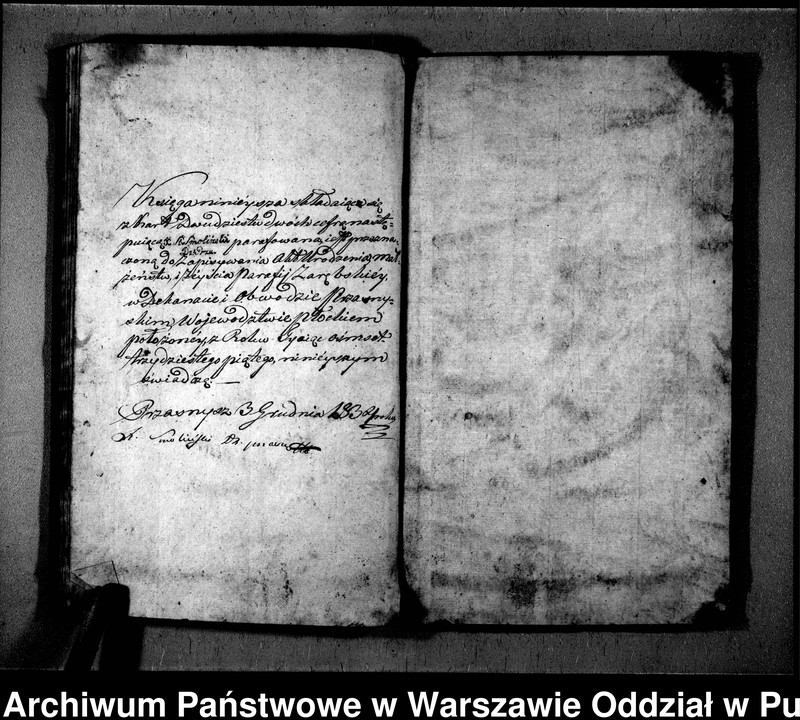 Księga ninieysza składaiąca się
z kart Dwudziestu dwóch cofrę nastę-
puiącą parafowana, iest przezna-
czoną do Zapisywania Akt Urodzenia, mał-
żeństw, i Zeyścia Parafij Zarębskiéy
w Dekanacie i Obwodzie Przasny-
skim, Woiewództwie Płockiem
położonéy, z Roku Tysiąc ośmset
trzydziestego piątego, ninieyszym
świadczę. —
Przasnysz 3 Grudnia 1834 roku
Smoliński
Archiwum Państwowe w Warszawie Oddział w Pu